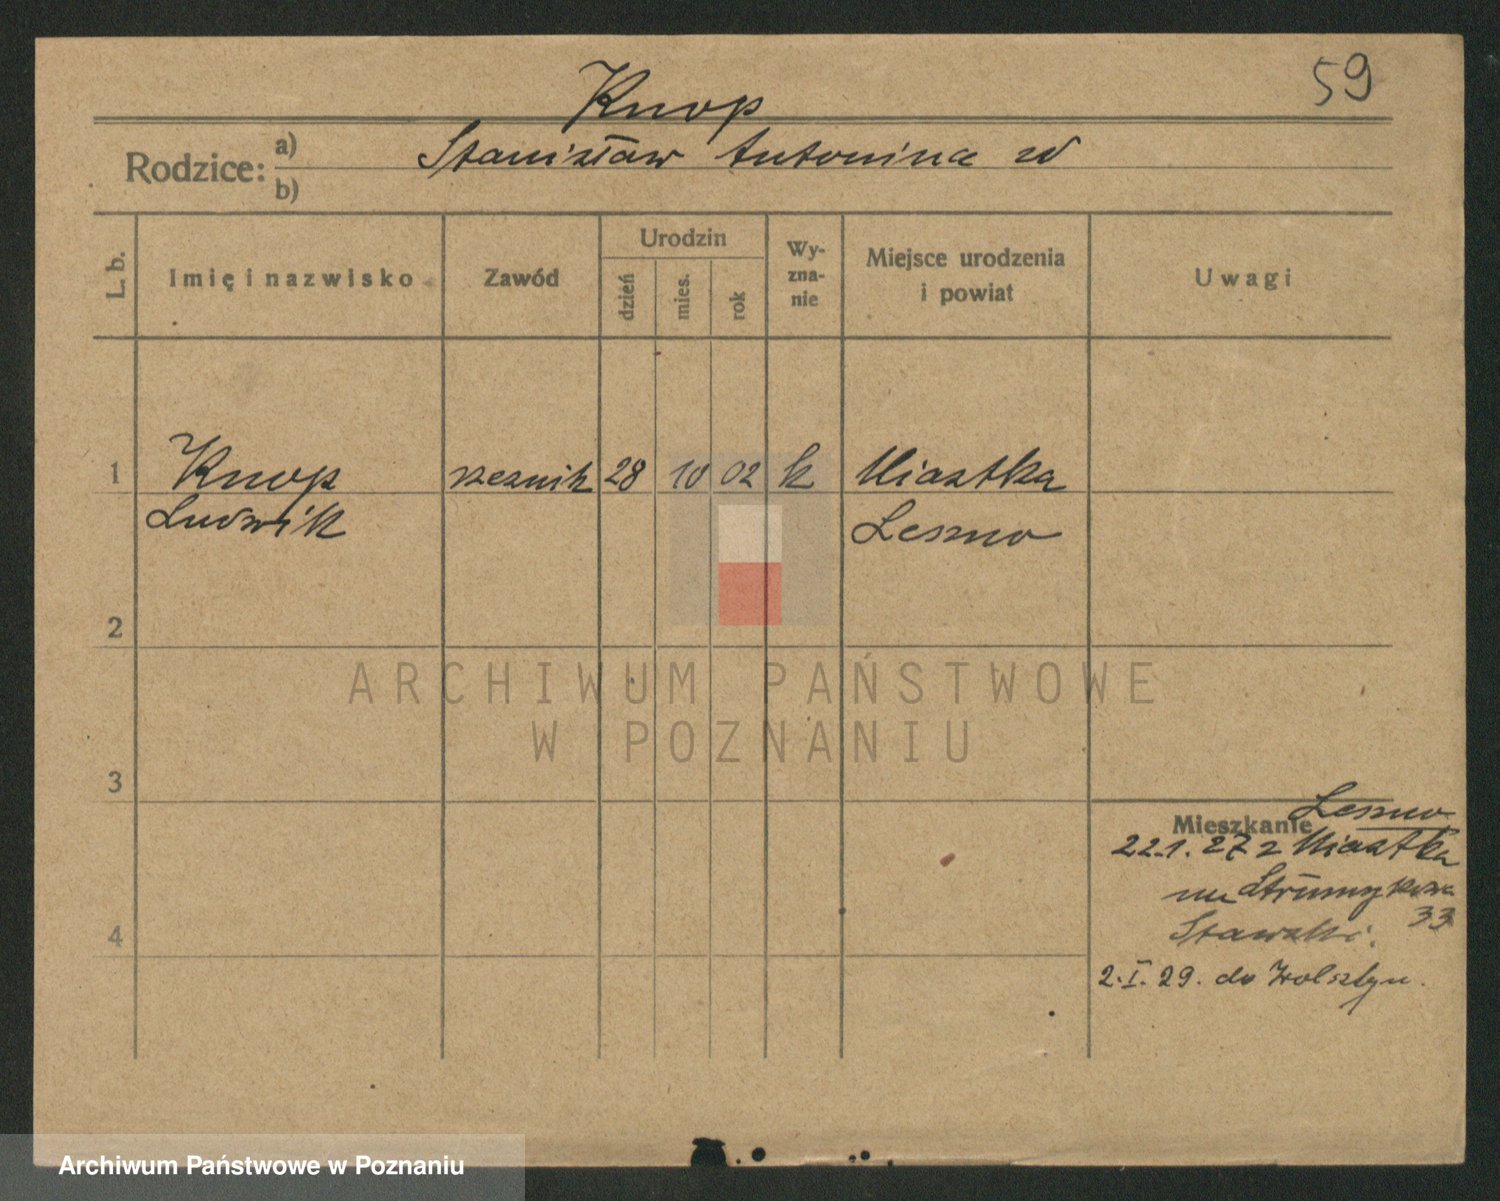 59
Knop
Rodzice: a) Stanisław Antonina
b)
L. b.
Imię i nazwisko
Zawód
Urodzin
dzień
mies.
rok
Wy-
zna-
nie
Miejsce urodzenia
i powiat
Uwagi
1 Knop rzeznik 28 10 02 k Miastka
Ludwik Leszno
2
ARCHIWUM PAŃSTWOWE
W POZNANIU
3
Mieszkanie Leszno
22.1.27 z Miastka
na
33
4
2.I.29. do Wolsztyn.
Archiwum Państwowe w Poznaniu